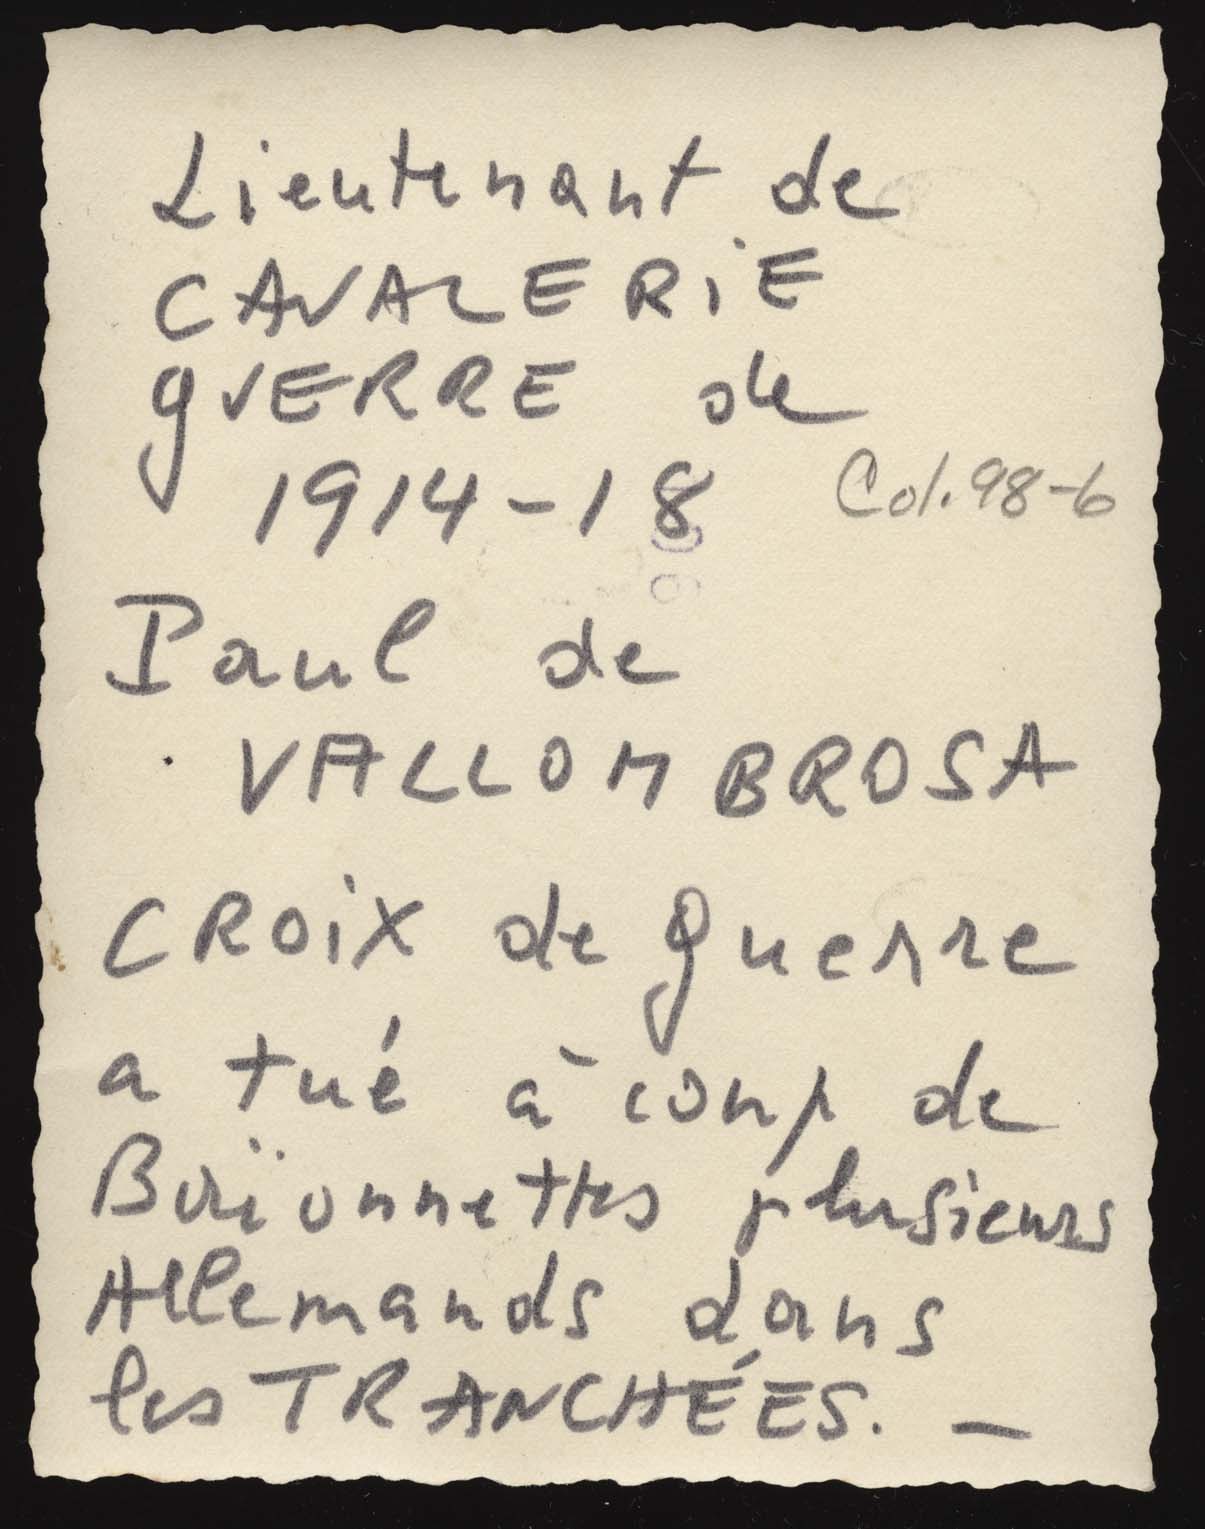 Lieutenant de
CAVALERiE
gUERRE de
1914-18
Col. 98-6
Paul de
VALLOMBROSA
CROiX de guerre
a tué à coup de
Baïonnettes plusieurs
Allemands dans
les TRANCHÉES. —